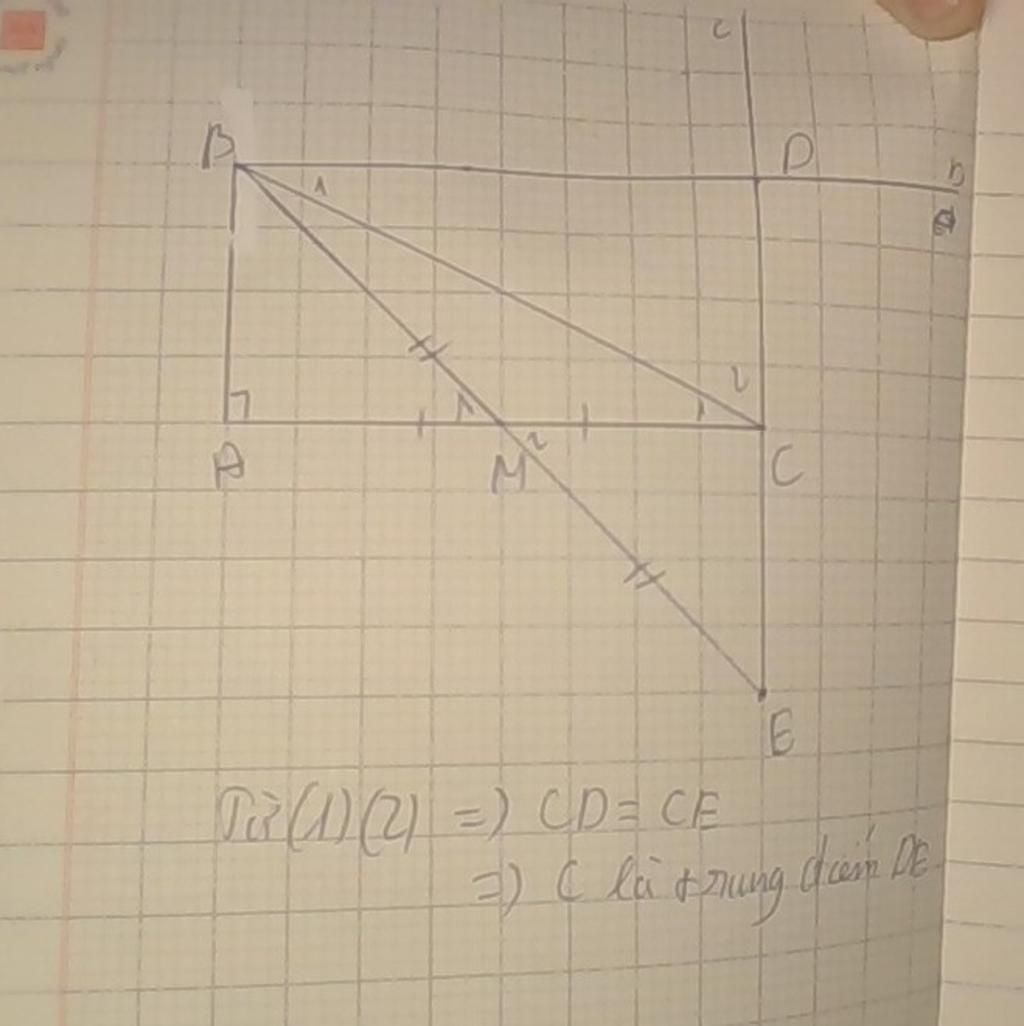 c
B
D
1
2
1
1
A
M
2
C
E
Từ (1) (2) => CD = CE
=> C là trung điểm DE